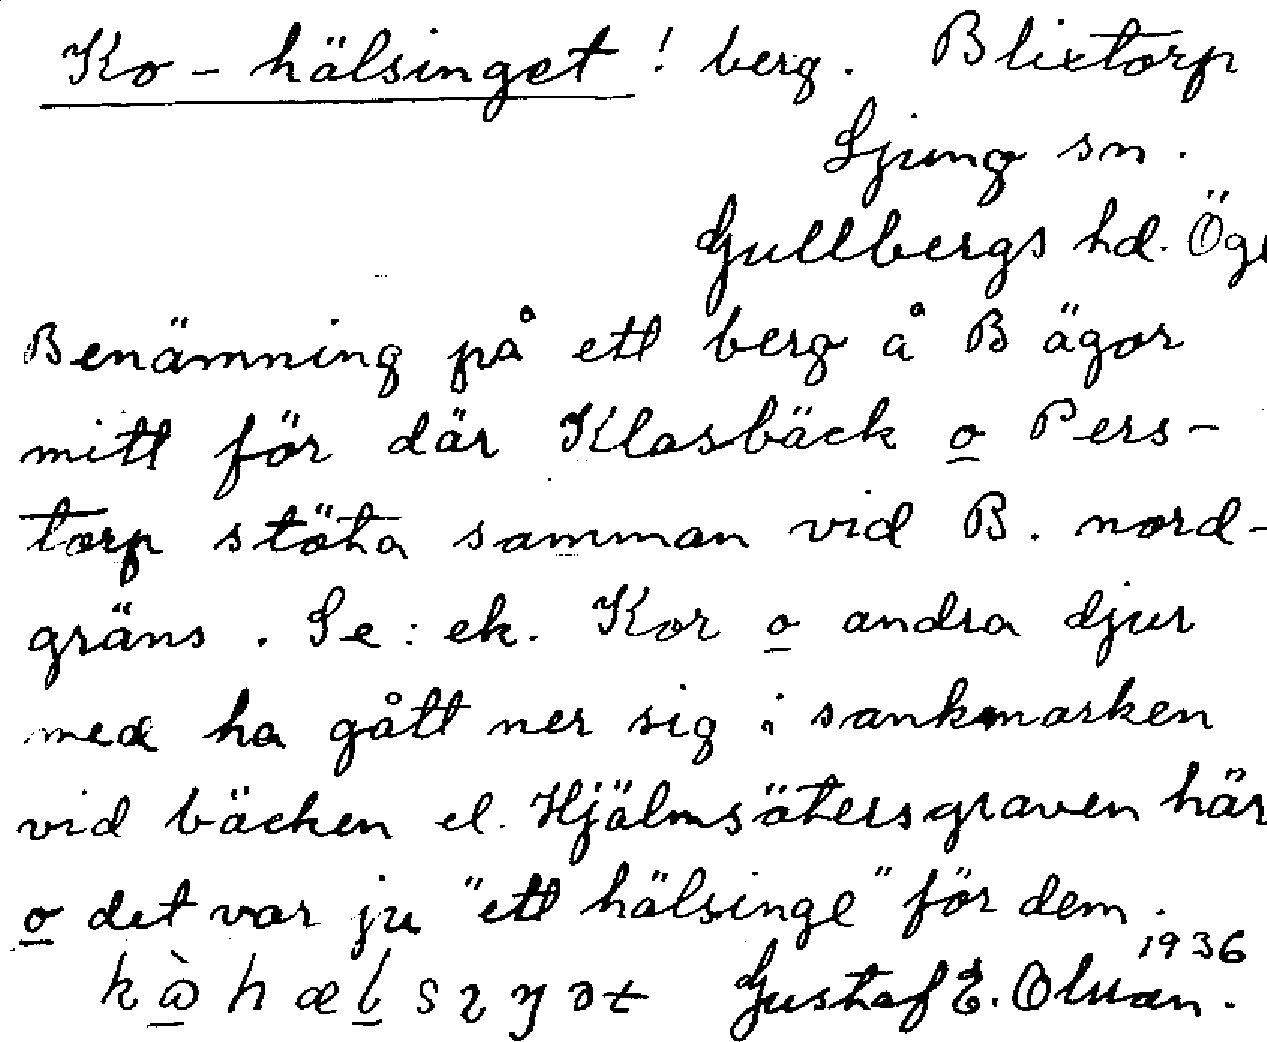 Ko-hälsinget! berg. Blixtorp
Ljung sn.
Gullbergs hd. Ög
Benämning på ett berg å B ägor
mitt för där Klasbäck o Pers-
torp stöta samman vid B. nord-
gräns. Se: ek. Kor o andra djur
med ha gått ner sig i sankmarken
vid bäcken el. Hjälmsätersgraven här
o det var ju "ett hälsinge" för dem.
1936
Gustaf E. Olsson.